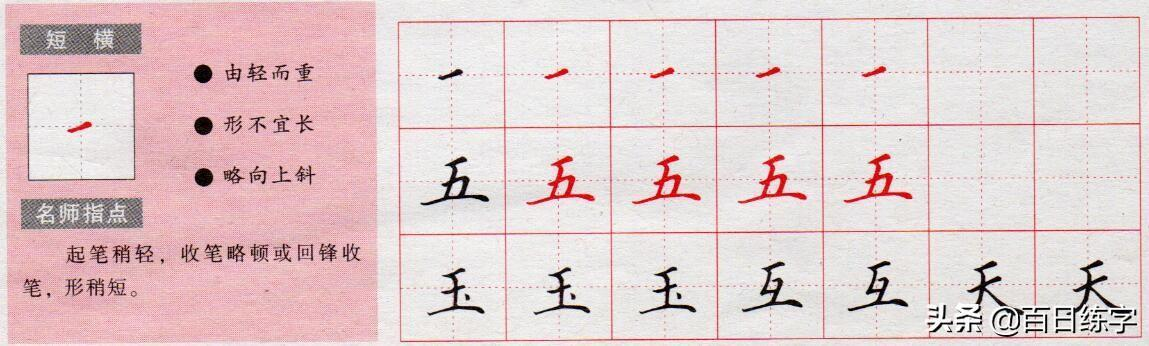 短 横
由轻而重
形不宜长
略向上斜
名师指点
起笔稍轻，收笔略顿或回锋收
笔，形稍短。
一 一 一 一 一 一
五 五 五 五 五
玉 玉 玉 互 互 天 天
头条 @百日练字